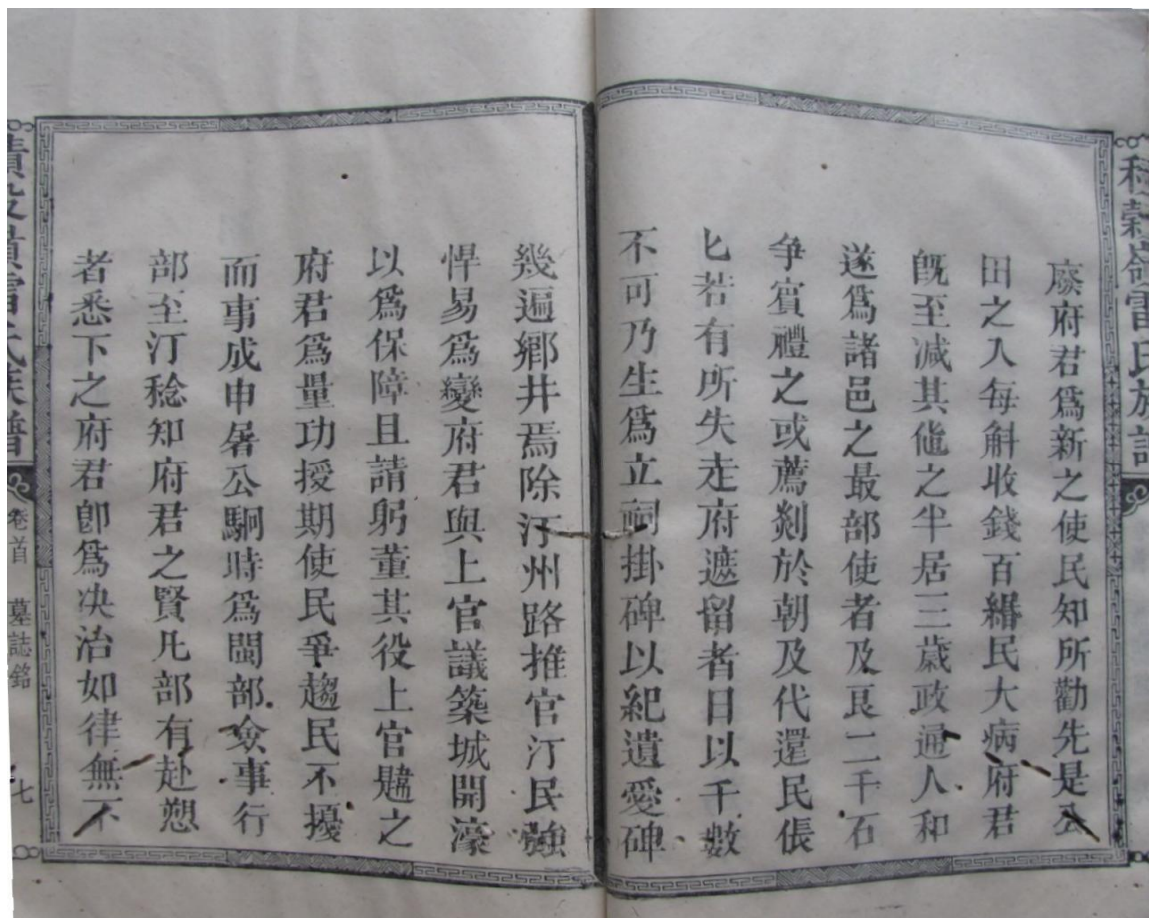 廢府君爲新之使民知所勸先是公
田之入每斛收錢百緡民大病府君
旣至減其他之半居三歲政通人和
遂爲諸邑之最部使者及良二千石
争賓禮之或薦剡於朝及代還民倀
匕若有所失走府遮留者日以千數
不可乃生爲立祠掛碑以紀遺愛碑
幾遍鄉井焉除汀州路推官汀民強
悍易爲變府君與上官議築城開濠
以爲保障且請躬董其役上官韙之
府君爲量功授期使民爭趨民不擾
而事成申屠公駉時爲閩部僉事行
部至汀稔知府君之賢凡部有赴愬
者悉下之府君卽爲决治如律無不
雷氏族譜
卷首 墓誌銘
七